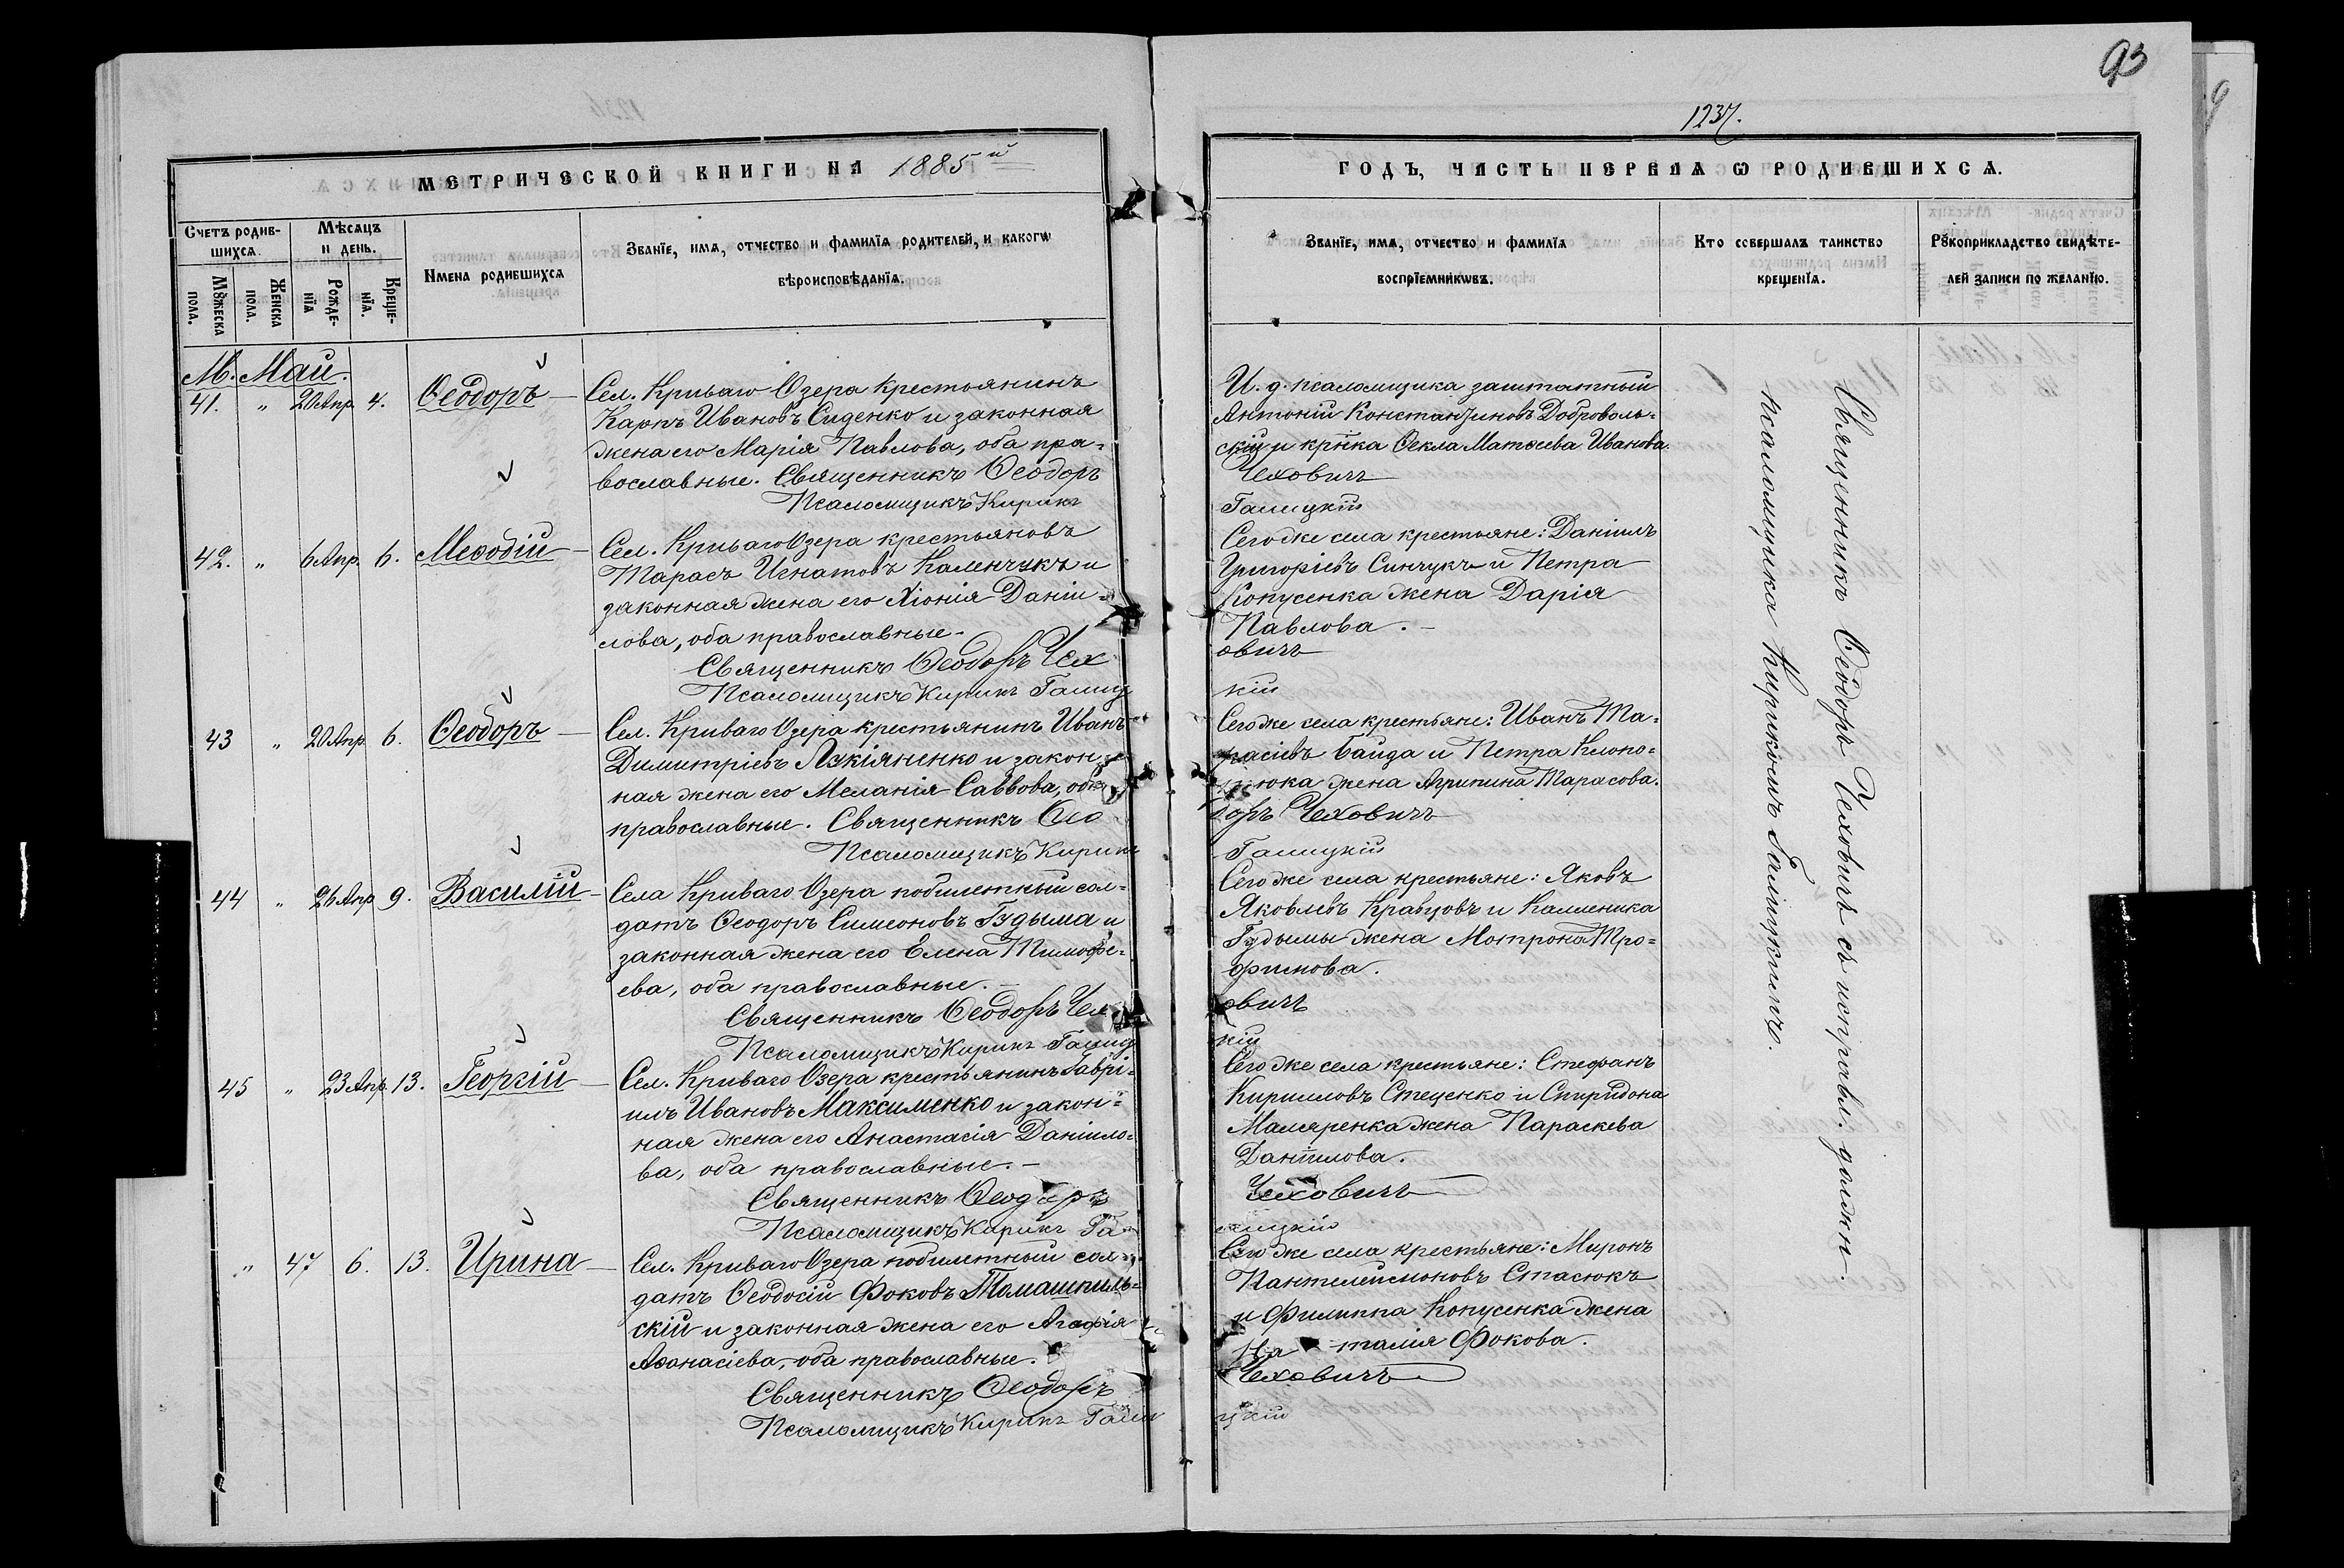 93
1237.
МЕТРИЧЕСКОЙ КНИГИ НА 1885й
ГОДЪ, ЧАСТЬ ПЕРВАѦ Ѡ РОДИВШИХСѦ.
Счетъ родив-
шихсѧ.
Мѣсѧцъ
и день.
Мꙋжеска
пола.
Женска
пола.
Рожде-
нїѧ
Креще-
нїѧ.
Имена родившихсѧ
Званїе, имѧ, отчество и фамилїѧ родителей, и какогѡ
вѣроисповѣданїѧ.
Званїе, имѧ, отчество и фамилїѧ
воспрїемникѡвъ.
Кто совершалъ таинство
крещенїѧ.
Рꙋкоприкладство свидѣте-
лей записи по желанїю.
М. Май.
41. " 20 Апр. 4. Ѳеодоръ
Сел. Криваго Озера крестьянинъ
Карпъ Ивановъ Сиденко и законная
жена его Марія Павлова, оба пра-
вославные. Священникъ Ѳеодоръ
Псаломщикъ Кирикъ
И. д. псаломщика заштатный
Антоній Константиновъ Доброволь-
скій и крѣ́ка Ѳекла Матѳеева Иванова.
Чеховичъ
Галицкій
42. " 6 Апр. 6. Меѳодій
Сел. Криваго Озера крестьяновъ
Тарасъ Игнатовъ Каленчукъ и
законная жена его Хіонія Даніи-
лова, оба православные.
Священникъ Ѳеодоръ Чех
Псаломщикъ Кирикъ Галиц
Сегоже села крестьяне: Даніилъ
Григоріевъ Синчукъ и Петра
Копусенка жена Дарія
Павлова.
овичъ
кій
43 " 20 Апр. 6. Ѳеодоръ
Сел. Криваго Озера крестьянинъ Иванъ
Димитріевъ Лукіяненко и закон-
ная жена его Меланія Саввова, оба
православные. Священникъ Ѳео
Псаломщикъ Кирикъ
Сегоже села крестьяне: Иванъ Та-
расіевъ Байда и Петра Клопо-
юка жена Агрипина Тарасова.
доръ Чеховичъ
Галицкій
44 " 26 Апр. 9. Василій
Села Криваго Озера побилетный сол-
датъ Ѳеодоръ Симеоновъ Гудыма и
законная жена его Елена Тимофе-
ева, оба православные.
Священникъ Ѳеодоръ Чех
Псаломщикъ Кирикъ Галиц
Сегоже села крестьяне: Яковъ
Яковлевъ Кравцовъ и Каллиника
Гудымы жена Мотрона Тро-
фимова.
овичъ
кій
45 " 23 Апр. 13. Георгій
Сел. Криваго Озера крестьянинъ Гаврі-
илъ Ивановъ Максименко и закон-
ная жена его Анастасія Даніило-
ва, оба православные.
Священникъ Ѳеодоръ
Псаломщикъ Кирикъ Га
Сегоже села крестьяне: Стефанъ
Кирилловъ Стеценко и Спиридона
Маляренка жена Параскева
Даніилова.
Чеховичъ
лицкій
" 47 6. 13. Ирина
Сел. Криваго Озера побилетный сол-
датъ Ѳеодосій Фоковъ Томашполь-
скій и законная жена его Агафія
Аѳанасіева, оба православные.
Священникъ Ѳеодоръ
Псаломщикъ Кирикъ Гали
Сегоже села крестьяне: Миронъ
Пантелеймоновъ Стасюкъ
и Филиппа Копусенка жена
На талія Фокова.
Чеховичъ
цкій
Священникъ Ѳеодоръ Чеховичъ съ исправл. должн.
псаломщика Кирикомъ Галицкимъ.